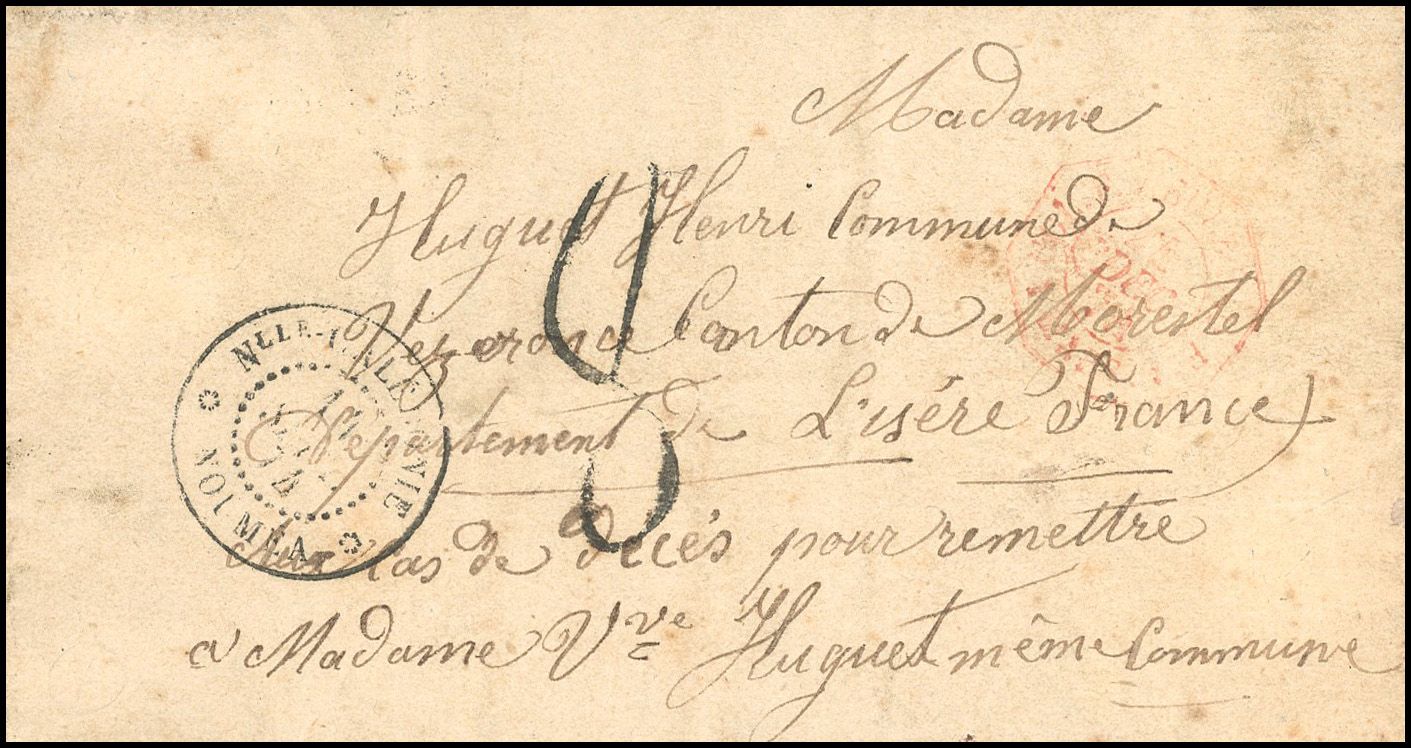 Madame
Huguet Henri Commune de
Vezeronce Canton de Morestel
Département de L'isére France
Aux Cas de décés pour remettre
a Madame Vve Huguet même Commune
NLLE-CALEDONIE
NOUMEA
DEC